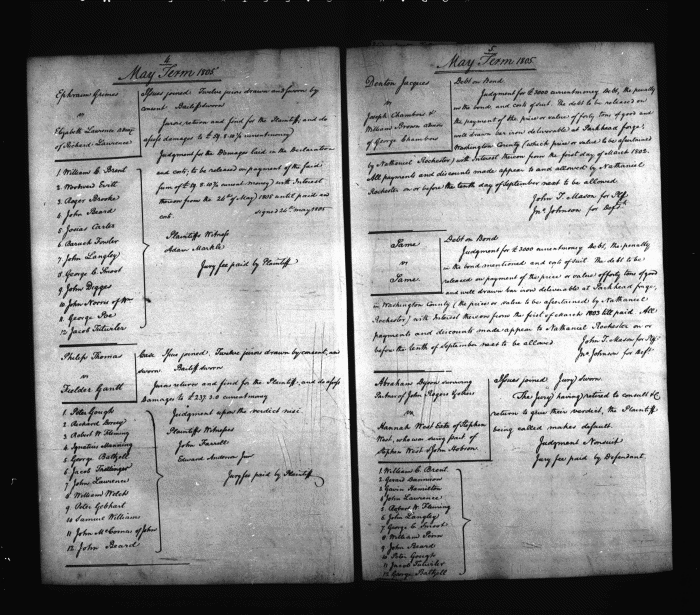 4
May Term 1805
Ephraim Grimes
vs
Elizabeth Lawrence admx
of Richard Lawrence
Issue joined. Twelve jurors drawn and sworn by
consent. Bailiff sworn
Jurors return and find for the Plaintiff, and do
assess damages to £ 19.8.10½ current money
Judgment for the Damages laid in the Declaration
and costs, to be released on payment of the said
sum of £ 19.8.10½ current money with Interest
thereon from the 24th of May 1805 until paid and
cost.
Signed 24th may 1805
1 William C. Brent
2 Evitt
3 Roger Brooke
4 John Beard
5 Josias Carter
6 Baruch Fowler
7 John Langley
8 George C. Smoot
9 John Digges
10 John Norris of Wm
11 George Poe
12 Jacob Tutwiler
Plaintiffs Witness
Adam Markle
Jury fee paid by Plaintiff
Philip Thomas
vs
Fielder Gantt
Case Issue joined. Twelve jurors drawn by consent, and
sworn Bailiff sworn
Jurors return and find for the Plaintiff, and do assess
Damages to £ 237.3.0 current money
Judgment upon the verdict nisi.
1 Peter Gough
2 Richard
3 Robert W. Fleming
4 Ignatius Manning
5 George Baltzell
6 Jacob
7 John Lawrence
8 William Welch
9 Peter Gebhart
10 Samuel Williams
11 John McCormac of John
12 John Beard
Plaintiffs Witnesses
John Farrell
Edward Anderson Junr
Jury fee paid by Plaintiff
5
May Term 1805
Denton Jacques
vs
Joseph Chambers &
William Brown admrs
of George Chambers
Debt on Bond
Judgment for £ 3000 current money Debt, the penalty
in the bond and costs of suit. The debt to be released on
the payment of the price or value of forty tons of good and
well drawn bar iron deliverable at Parkhead forge,
Washington County (which price or value) to be ascertained
by Nathaniel Rochester) with Interest thereon from the first day of March 1802.
All payments and discounts made appear to and allowed by Nathaniel
Rochester on or before the tenth day of September next to be allowed
John T. Mason for Plff
Jno. Johnson for Deft
Same
vs
Same
Debt on Bond
Judgment for £ 3000 current money Debt, the penalty
in the bond mentioned and costs of suit. The debt to be
released on payment of the price or value of forty tons of good
and well drawn bar iron deliverable at Parkhead forge,
in Washington County (the price or value to be ascertained by Nathaniel
Rochester) with Interest thereon from the first of march 1803 till paid. All
payments and discounts made appear to Nathaniel Rochester on or
before the tenth of September next to be allowed
John T. Mason for Plff
Jno. Johnson for Deft
Abraham surviving
Partner of John Rogers
vs
Hannah West Extx of Stephen
West, who was surviving part. of
Stephen West & John Hobson.
Issues joined Jury Sworn
The Jury having retired to consult &c
return to give their verdict, the Plaintiff
being called makes default.
Judgment Nonsuit
Jury fee paid by Defendant.
1 William C. Brent
2 Gerard
3 Gavin Hamilton
4 John Lawrence
5 Robert W. Fleming
6 John Langley
7 George C. Smoot
8 William
9 John Beard
10 Peter Gough
11 Jacob Tutwiler
12 George Baltzell